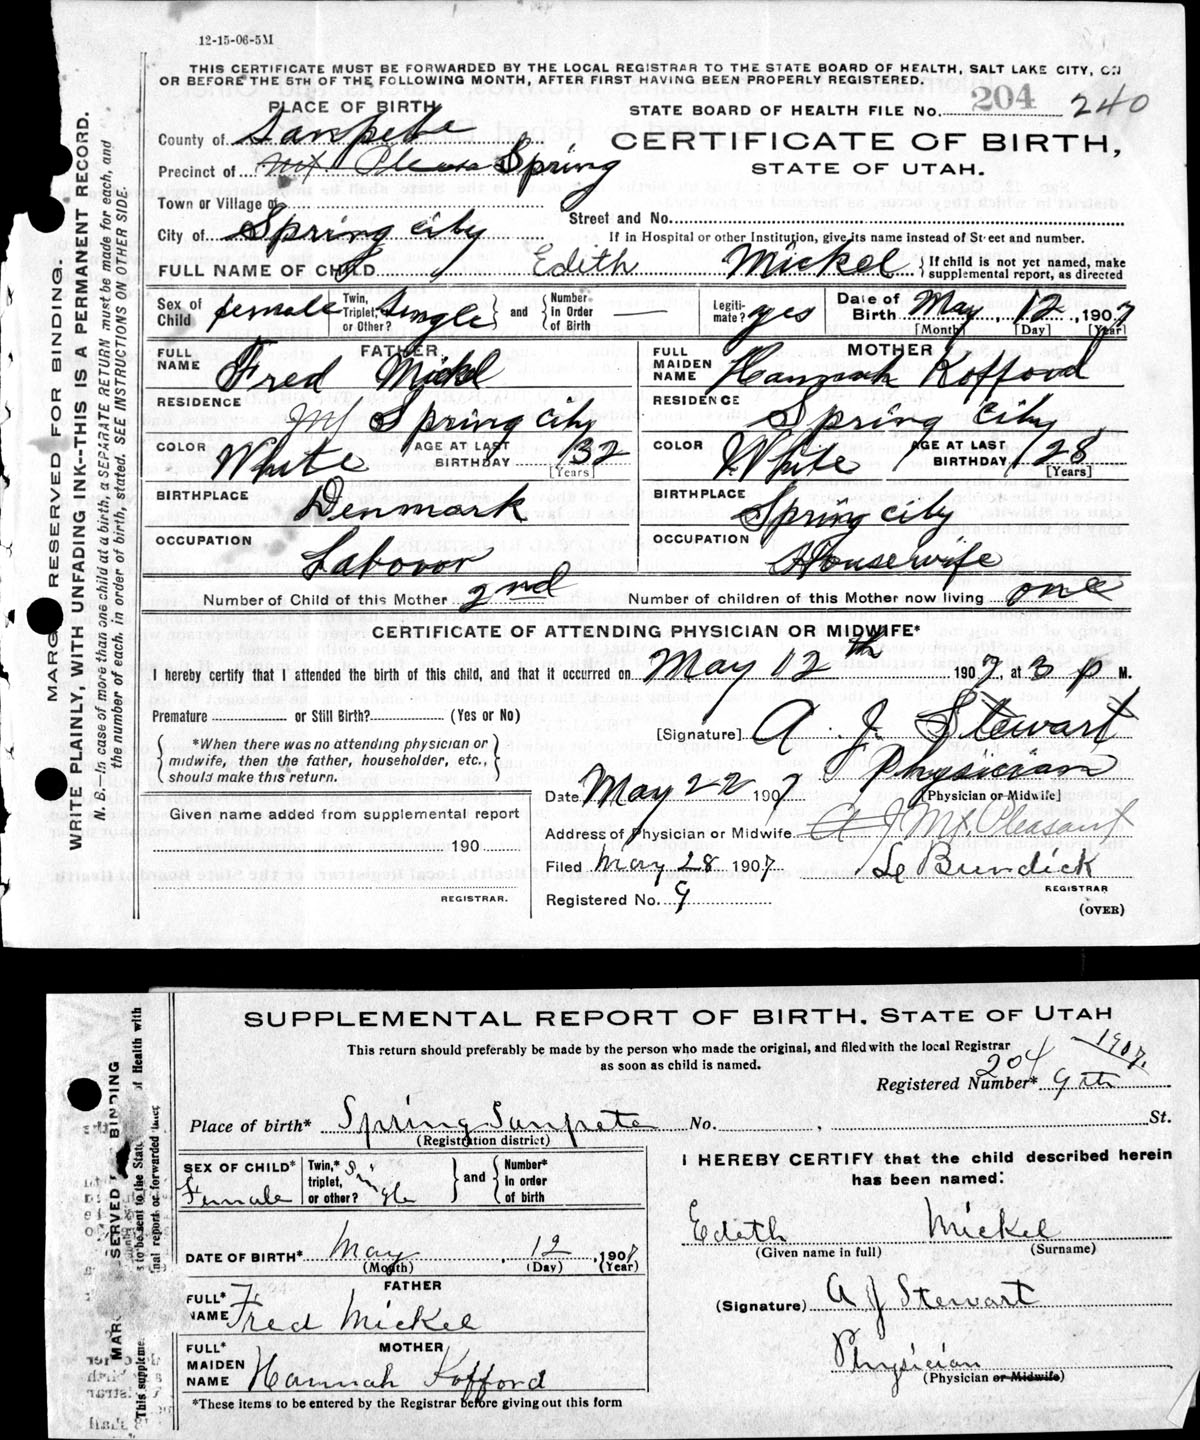 12-15-06-5M
THIS CERTIFICATE MUST BE FORWARDED BY THE LOCAL REGISTRAR TO THE STATE BOARD OF HEALTH, SALT LAKE CITY, ON
OR BEFORE THE 5TH OF THE FOLLOWING MONTH, AFTER FIRST HAVING BEEN PROPERLY REGISTERED.
PLACE OF BIRTH
STATE BOARD OF HEALTH FILE No. 204 240
County of Sanpete
CERTIFICATE OF BIRTH,
STATE OF UTAH.
Precinct of Mt. Pleasa Spring
Town or Village of
Street and No.
City of Spring City
If in Hospital or other Institution, give its name instead of Street and number.
FULL NAME OF CHILD Edith Mickel } If child is not yet named, make supplemental report, as directed
Sex of Child female Twin, Triplet, or Other? Single } and { Number in Order of Birth — Legitimate? yes Date of Birth May 12, 1907
[Month] [Day] [Year]
FATHER MOTHER
FULL NAME Fred Mickel FULL MAIDEN NAME Hannah Kofford
RESIDENCE Spring City RESIDENCE Spring City
COLOR White AGE AT LAST BIRTHDAY 32 [Years] COLOR White AGE AT LAST BIRTHDAY 28 [Years]
BIRTHPLACE Denmark BIRTHPLACE Spring City
OCCUPATION Labovor OCCUPATION Housewife
Number of Child of this Mother 2nd Number of children of this Mother now living one
CERTIFICATE OF ATTENDING PHYSICIAN OR MIDWIFE*
I hereby certify that I attended the birth of this child, and that it occurred on May 12th 1907, at 3 p M.
Premature or Still Birth? (Yes or No)
[Signature] A. J. Stewart
{ *When there was no attending physician or midwife, then the father, householder, etc., should make this return. }
Physician
Date May 22 1907 [Physician or Midwife]
Given name added from supplemental report
190
REGISTRAR.
Address of Physician or Midwife A J Mt. Pleasant
Filed May 28 1907 Bundick
REGISTRAR
Registered No. 9
(OVER)
MARGIN RESERVED FOR BINDING.
WRITE PLAINLY, WITH UNFADING INK--THIS IS A PERMANENT RECORD.
N. B.—In case of more than one child at a birth, a SEPARATE RETURN must be made for each, and
the number of each, in order of birth, stated. SEE INSTRUCTIONS ON OTHER SIDE.
SUPPLEMENTAL REPORT OF BIRTH, STATE OF UTAH
This return should preferably be made by the person who made the original, and filed with the local Registrar
as soon as child is named.
204 1907.
Registered Number* 9th
Place of birth* Spring Sanpete No. , St.
(Registration district)
SEX OF CHILD* Female Twin,* triplet, or other? Single } and { Number* in order of birth
I HEREBY CERTIFY that the child described herein
has been named:
Edith Mickel
(Given name in full) (Surname)
DATE OF BIRTH* May 12, 1907
(Month) (Day) (Year)
FATHER
FULL* NAME Fred Mickel
(Signature) A J Stewart
MOTHER
FULL* MAIDEN NAME Hannah Kofford
Physician
(Physician or Midwife)
*These items to be entered by the Registrar before giving out this form